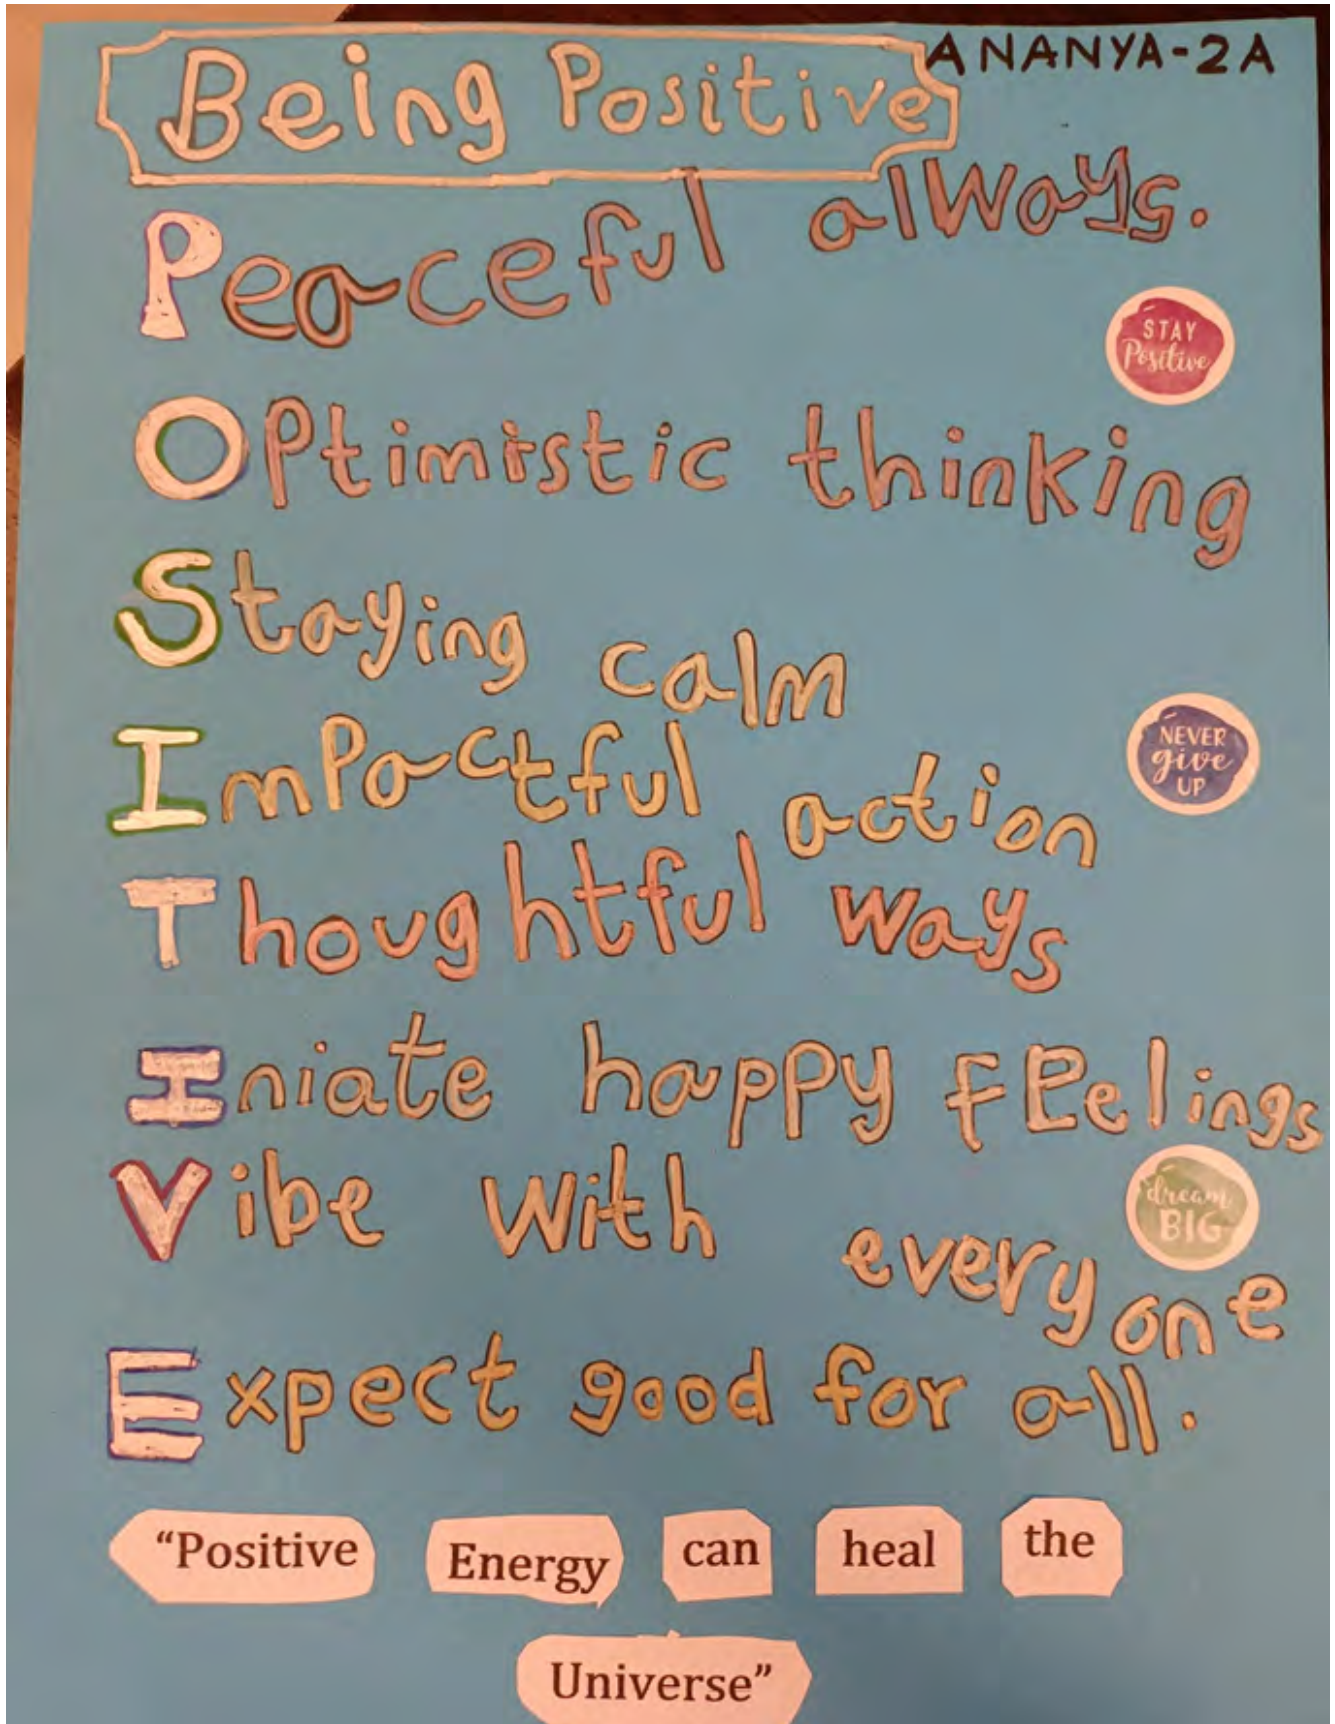 Being Positive
ANANYA-2A
Peaceful always.
STAY
Positive
Optimistic thinking
Staying calm
Impactful action
NEVER
give
UP
Thoughtful ways
Iniate happy feelings
Vibe with everyone
dream
BIG
Expect good for all.
“Positive Energy can heal the
Universe”